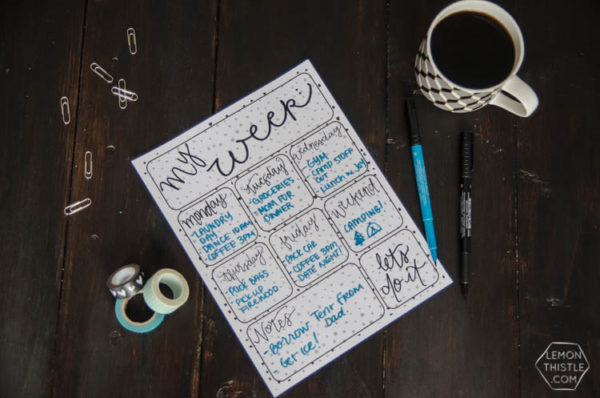 my
week:
monday
-LAUNDRY
DAY
DANCE 10AM
COFFEE 3PM
tuesday
-GROCERIES
-MOM FOR
DINNER
wednesday
-GYM
-CAMP STUFF
OUT
Lunch w. Jo!
thursday
-PACK BAGS
-PICK UP
FIREWOOD
friday
-PACK CAR
COFFEE 3PM
DATE NIGHT!
weekend
CAMPING!
Notes
-Borrow Tent From
Dad.
-Get Ice!
let's
do it
LEMON
THISTLE
.COM